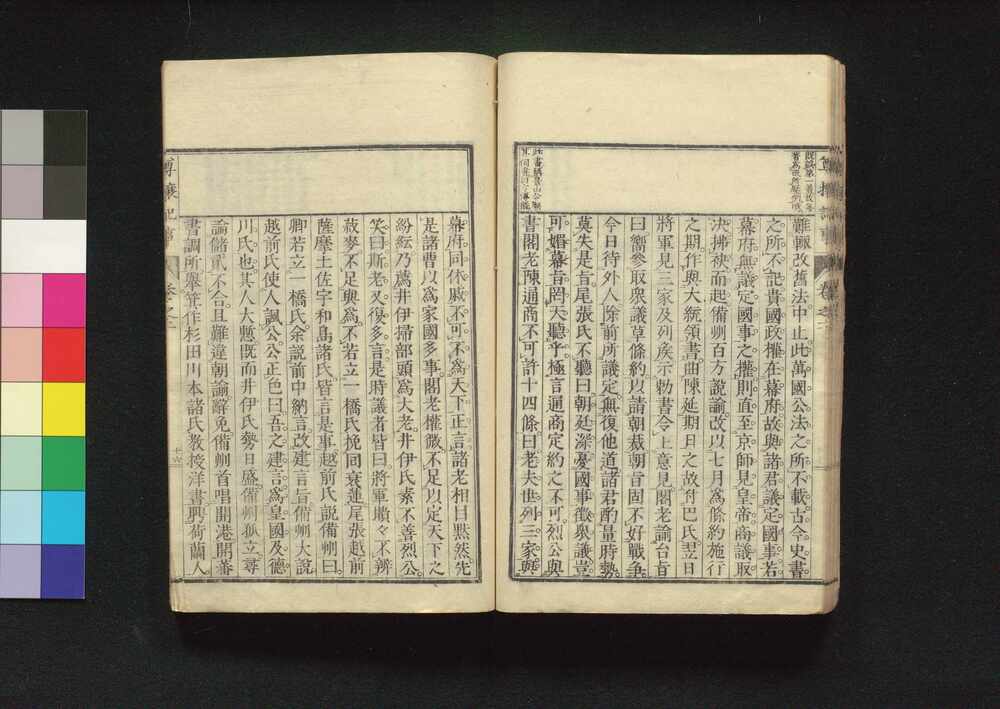 難輒改舊法中止此萬國公法之所不載古今史書
之所不記貴國政權在幕府故與諸君議定國事若
幕府無議定國事之權則直至京師見皇帝商議取
決拂袂而起備州百方說諭改以七月為條約施行
之期作與大統領書曲陳延期日之故附巴氏翌日
將軍見三家及列矦示勅書令上意見閣老諭台旨
曰嚮參取衆議草條約以請朝裁朝旨固不好戰爭
今日待外人除前所議定無復他道諸君酌量時勢
莫失是旨尾張氏不聽曰朝廷深憂國事徵衆議豈
可媚幕旨罔天聽乎極言通商定約之不可烈公與
書閣老陳通商不可許十四條曰老夫世列三家與
尊攘紀事
卷之二
幕府同休戚不可不為天下正言諸老相目默然先
是諸曹以為家國多事閣老權微不足以定天下之
紛紜乃薦井伊掃部頭為大老井伊氏素不善烈公
笑曰斯老又復多言是時議者皆曰將軍䫫々不辨
菽麥不足與為不若立一橋氏挽回衰運尾張越前
薩摩土佐宇和島諸氏皆言是事越前氏說備州曰
卿若立一橋氏余說前中納言改建言旨備州大說
越前氏使人諷公公正色曰吾之建言為皇國及德
川氏也其人大慙既而井伊氏勢日盛備州孤立尋
論儲貳不合且難違朝諭辭免備州首唱開港開蕃
書調所舉箕作杉田川本諸氏教授洋書聘荷蘭人
尊攘紀事
卷之二
十六